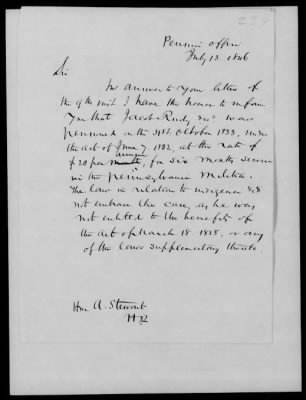 234
Pension Office
July 13 1846
Sir
In answer to your letter of
the 9th inst. I have the honor to inform
you that Jacob Rudy decd was
pensioned on the 31st October 1833, under
the act of June 7, 1832, at the rate of
annum
$20 per month, for six months service
in the Pennsylvania Militia.
The law in relation to indigence did
not embrace the case, as he was
not entitled to the benefit of
the act of March 18. 1818, or any
of the laws supplementary thereto.
Hon A. Stewart
H R